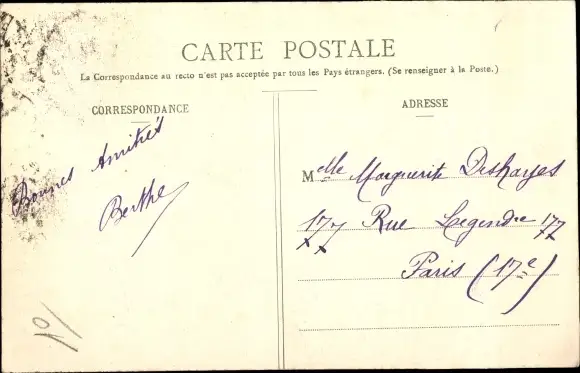 CARTE POSTALE
La Correspondance au recto n'est pas acceptée par tous les Pays étrangers. (Se renseigner à la Poste.)
CORRESPONDANCE
Bonnes Amitiés
Berthe
ADRESSE
Melle Marguerite Deshayes
177 Rue Legendre 177
Paris (17e)